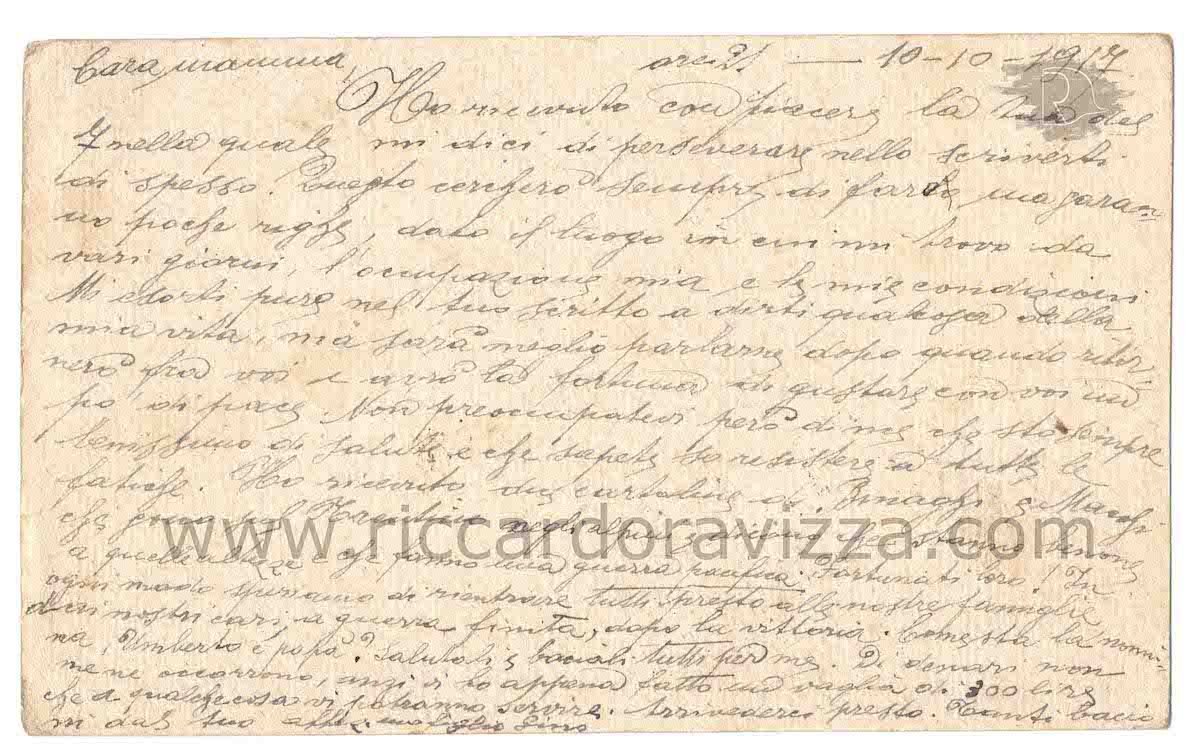 Cara mamma, ore 21 — 10-10-1917
Ho ricevuto con piacere la tua del
7 nella quale mi dici di perseverare nello scriverti
di spesso. Questo cercherò sempre di farlo, ma saran-
no poche righe, dato il luogo in cui mi trovo da
vari giorni, l'occupazione mia e le mie condizioni
Mi esorti pure nel tuo scritto a dirti qualcosa della
mia vita, ma sarà meglio parlarne dopo quando ritor-
nerò fra voi e avrò la fortuna di gustare con voi un
po' di pace. Non preoccupatevi però di me che sto sempre
benissimo di salute e che sapete so resistere a tutte le
fatiche. Ho ricevuto due cartoline di Binaghi e Macchi
che sono nel Trentino negli alpini e dicono che stanno benone
a quelle altezze e che fanno una guerra pacifica. Fortunati loro! In
ogni modo speriamo di rientrare tutti presto alle nostre famiglie
dai nostri cari, a guerra finita, dopo la vittoria. Come sta la nonni-
na, Umberto e papà? Salutali e baciali tutti per me. Di denari non
me ne occorrono, anzi vi ho appena fatto un vaglia di 300 lire
che a qualche cosa vi potranno servire. Arrivederci presto. Tanti baci
mi dal tuo aff. mo figlio Gino
www.riccardoravizza.com